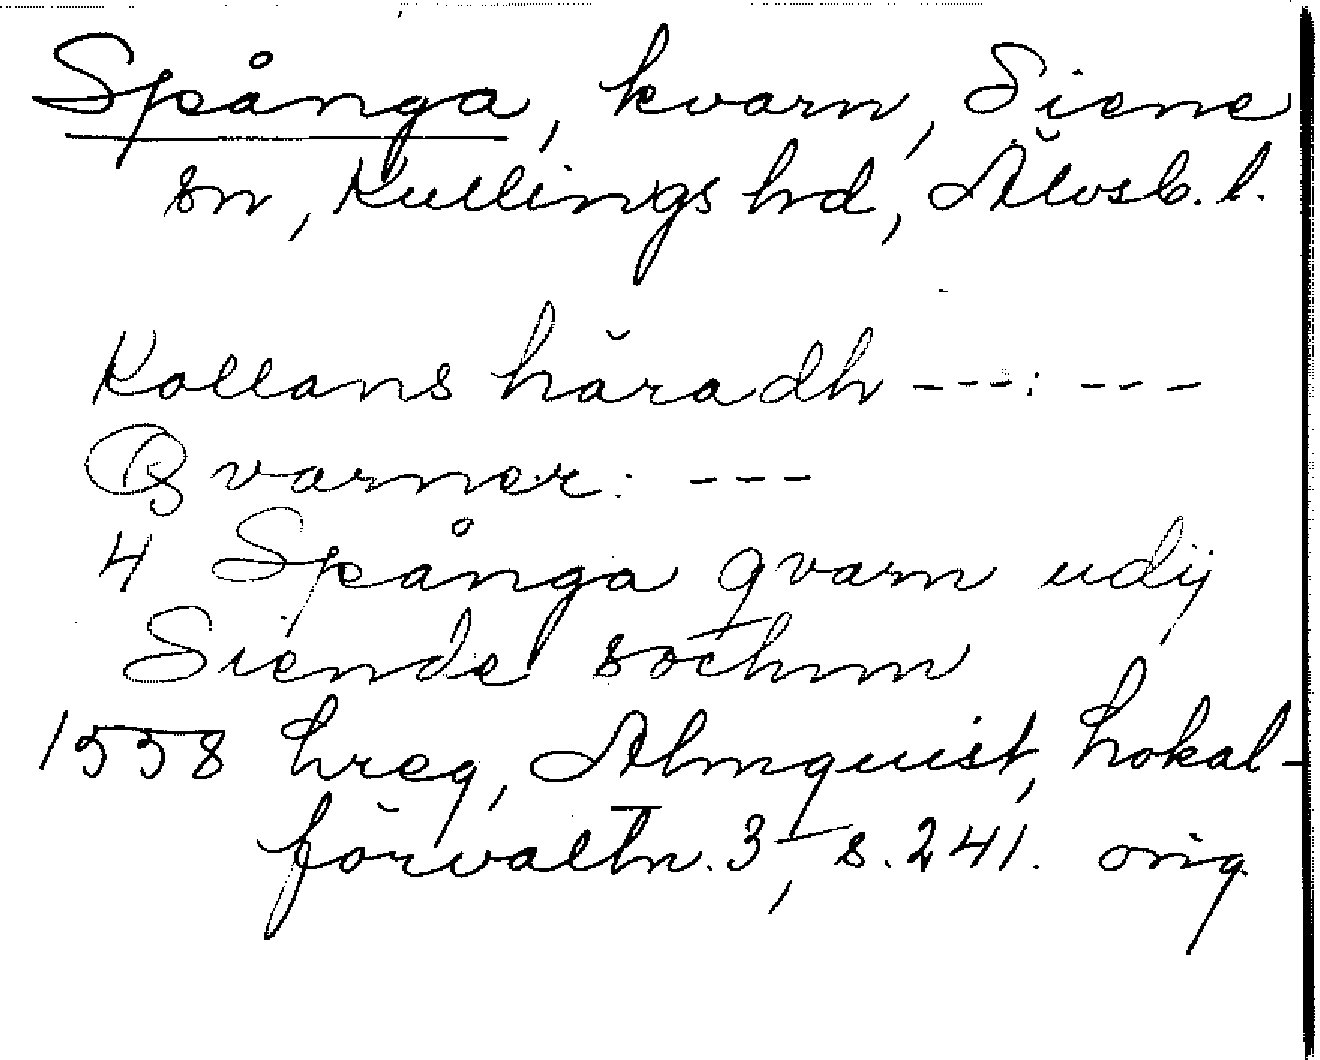 Spånga, kvarn, Siene
sn, Kullings hd, Älvsb. l.
Kollans häradh ---: ---
Qvarner: ---
4 Spånga qvarn udij
Siende sochnn
1558 hreg, Almquist, Lokal-
förvaltn. 3, s. 241. orig